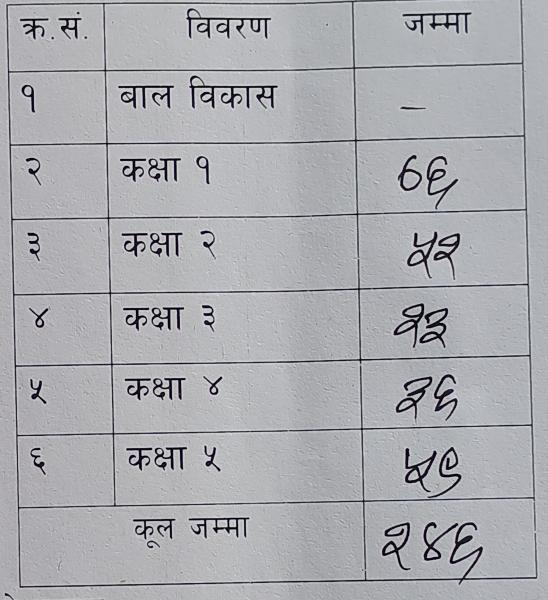 क्र.सं. विवरण जम्मा
१ बाल विकास –
२ कक्षा १ ७६
३ कक्षा २ ५२
४ कक्षा ३ २३
५ कक्षा ४ ३६
६ कक्षा ५ ५९
कूल जम्मा २४६